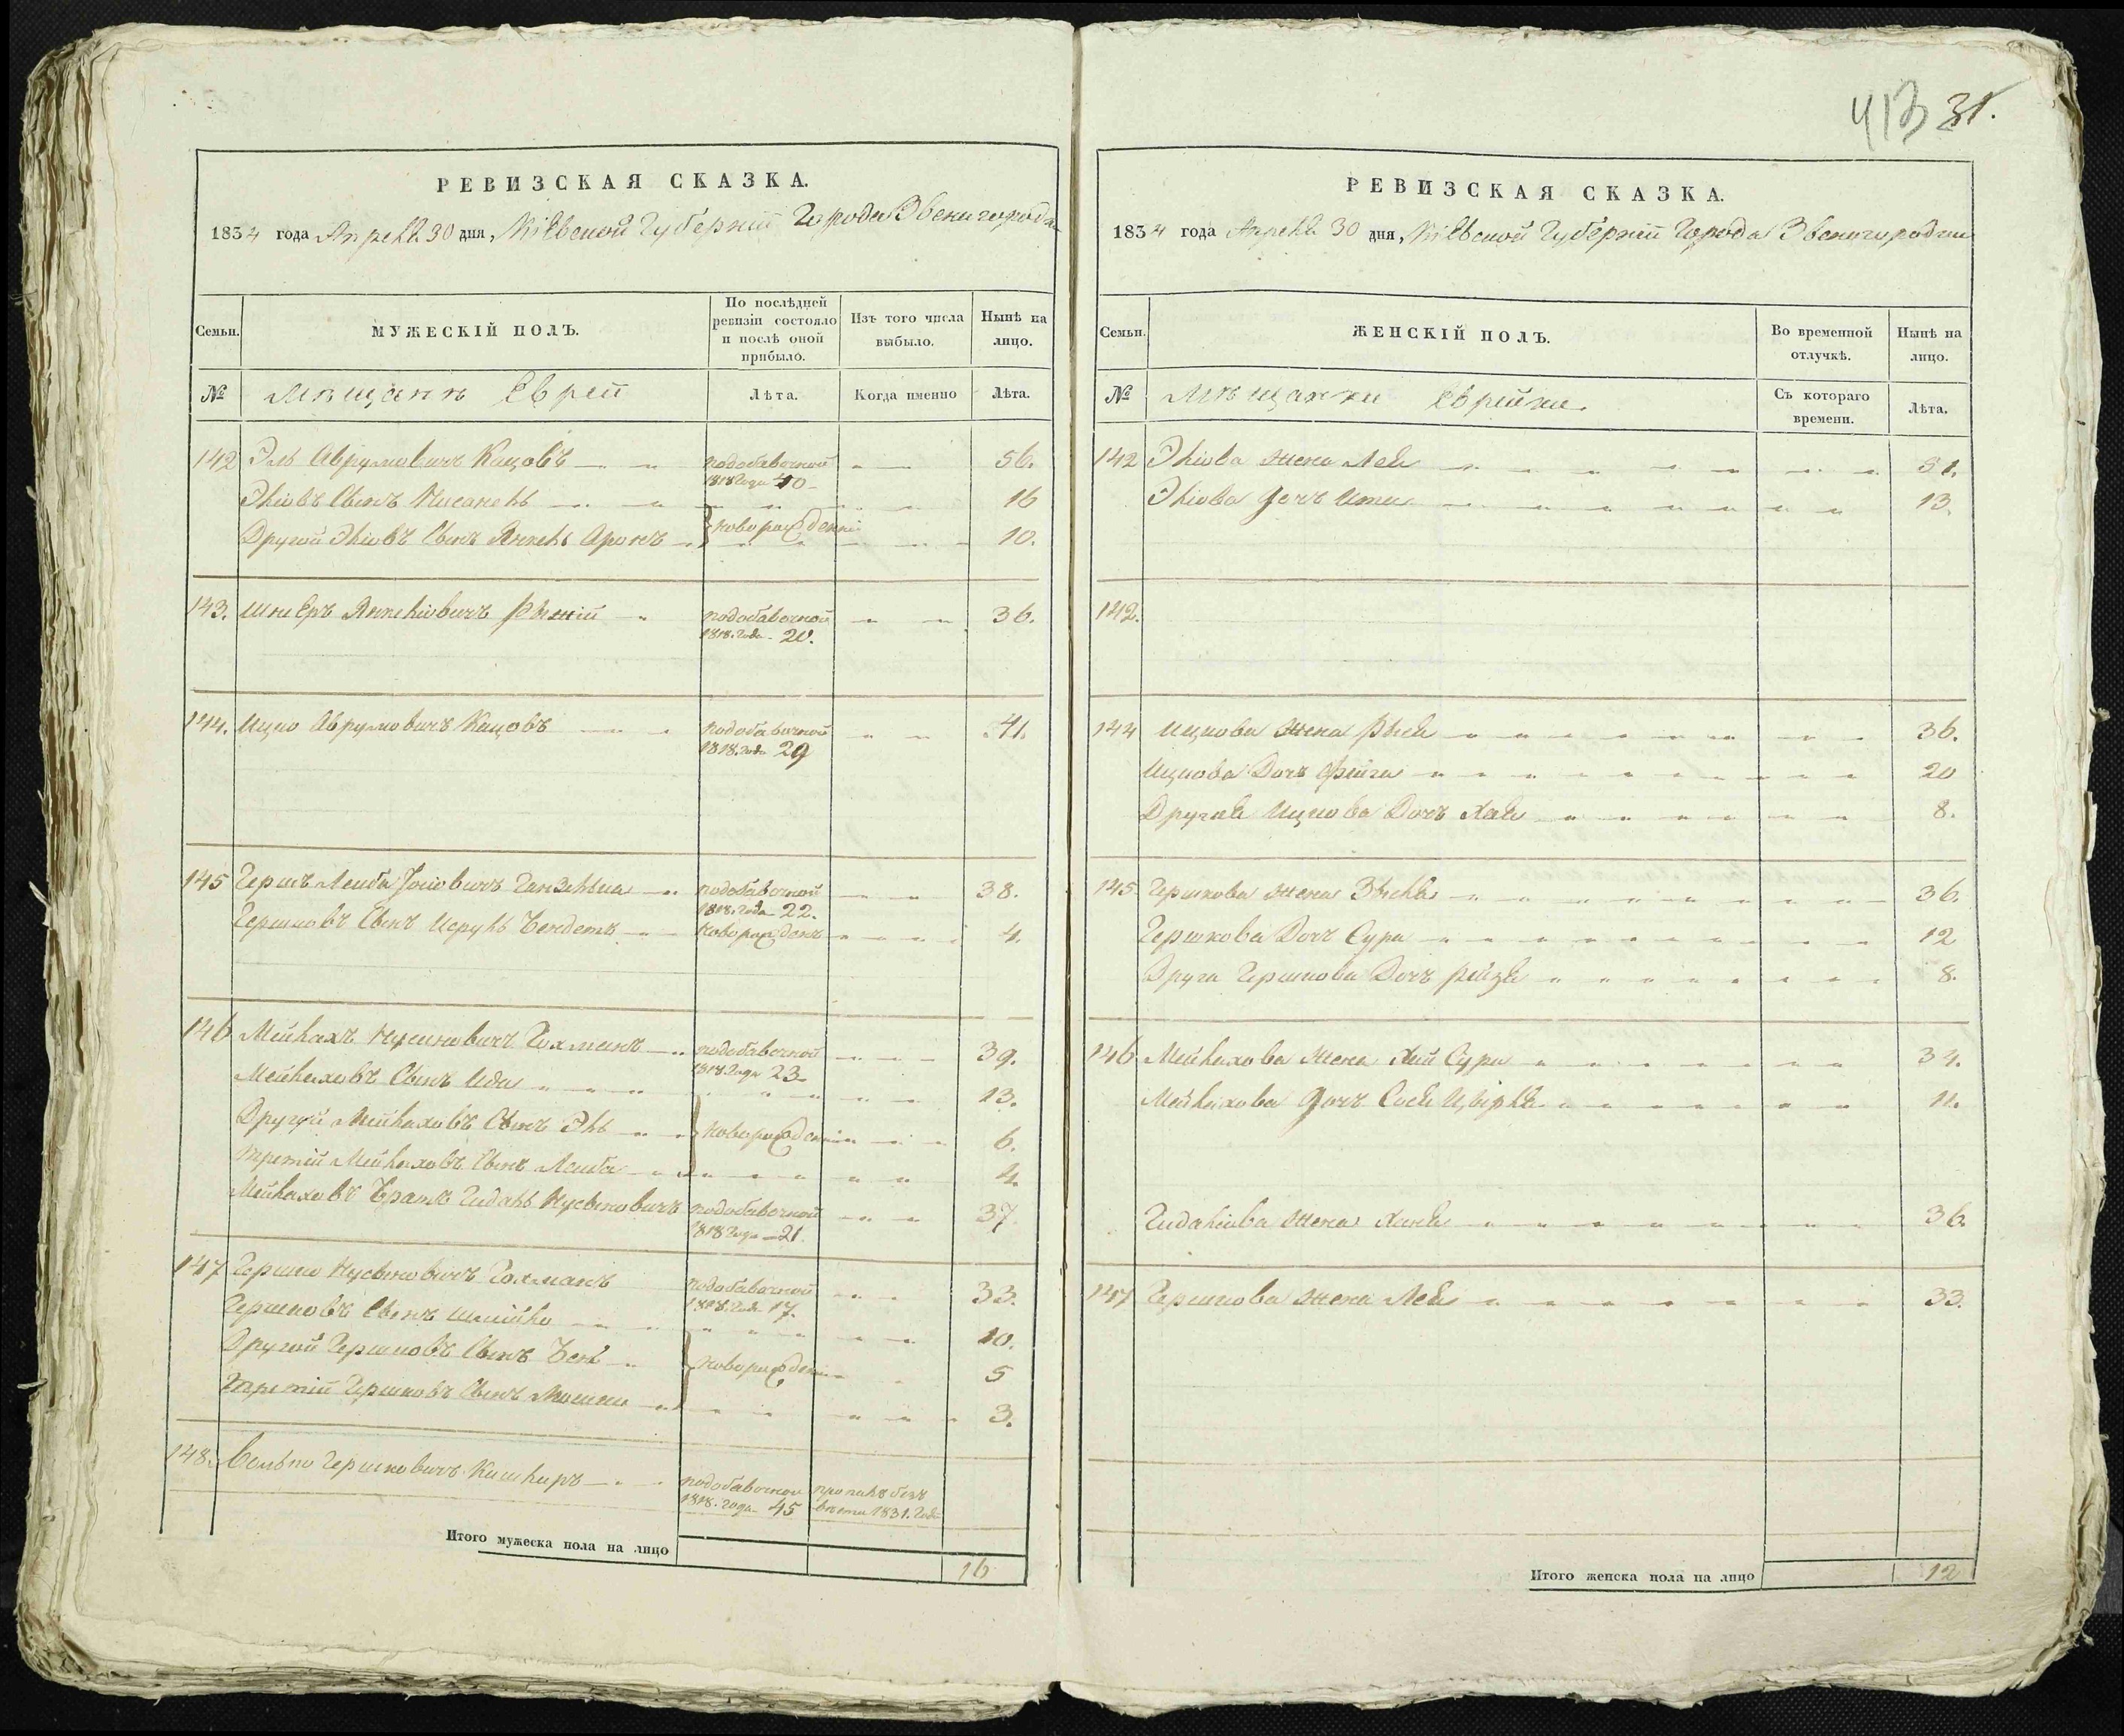 413 31.
РЕВИЗСКАЯ СКАЗКА.
1834 года Апреля 30 дня, Кіевской Губерніи Города Звенигородки
Семьи.
МУЖЕСКІЙ ПОЛЪ.
По послѣдней ревизіи состояло и послѣ оной прибыло.
Изъ того числа выбыло.
Нынѣ на лицо.
№
Мѣщанѣ Евреи
Лѣта.
Когда именно
Лѣта.
142 Эль Аврумовичъ Кацовъ подобавочной 1818 Года 40 56.
Эліовъ Сынъ Нисанель 16
новорожденніи
Другой Эліовъ Сынъ Янкель Аронъ 10.
143. Шнеръ Янкеліовичъ Рыжій подобавочной 1818. Года 20. 36.
144. Ицко Аврумовичъ Кацовъ подобавочной 1818. Года 29 41.
145 Гершъ Лейба Іосіовичъ подобавочной 1818. Года 22. 38.
Гершковъ Сынъ Исруль Бендетъ новорожденъ 4.
146 Мейлахъ Нусиновичъ Гохманъ подобавочной 1818 Года 23 39.
Мейлаховъ Сынъ Иды 13.
Другой Мейлаховъ Сынъ Эль новорожденніи 6.
Третій Мейлаховъ Сынъ Лейба 4.
Мейлаховъ Братъ Гидаль Нусыновичъ подобавочной 1818 Года 21. 37.
147 Гершко Нусыновичъ Гохманъ подобавочной 1818. Года 17. 33.
Гершковъ Сынъ Шмилко 10.
Другой Гершковъ Сынъ новорожденіи 5
Третій Гершковъ Сынъ Мошко 3.
148. Волько Гершковичъ подобавочной 1818. Года 45 пропалъ безъ вѣсти 1831. Года
Итого мужеска пола на лицо 16
РЕВИЗСКАЯ СКАЗКА.
1834 года Апреля 30 дня, Кіевской Губерніи Города Звенигородки
Семьи.
ЖЕНСКІЙ ПОЛЪ.
Во временной отлучкѣ.
Нынѣ на лицо.
№
Мѣщанки Еврейки.
Съ котораго времени.
Лѣта.
142 Эліова жена Лея 51.
Эліова Дочъ Ита 13.
142.
144 Ицкова жена Рыся 36.
Ицкова Дочъ Фейга 20
Другая Ицкова Дочъ Хая 8.
145. Гершкова жена Зысля 36.
Гершкова Дочъ Сура 12
Друга Гершкова Дочъ Рейзя 8.
146 Мейлахова жена Хая Сура 34.
Мейлахова Дочъ Сося 11.
Гидаліова жена Ханя 36.
147 Гершкова жена Лея 33.
Итого женска пола на лицо 12